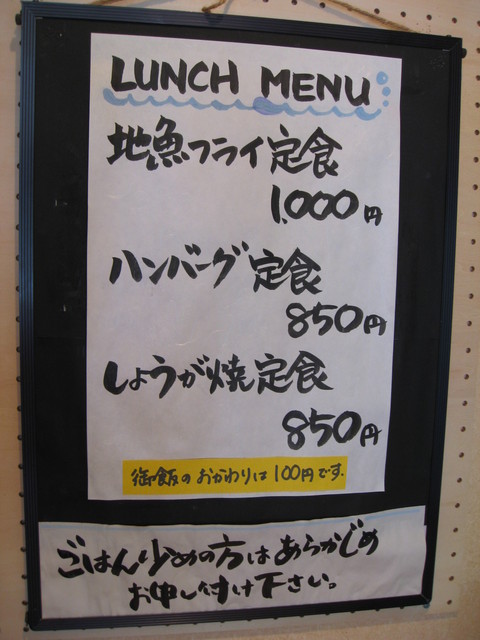 LUNCH MENU
地魚フライ定食
1,000円
ハンバーグ定食
850円
しょうが焼定食
850円
御飯のおかわりは100円です.
ごはん少めの方はあらかじめ
お申し付け下さい。